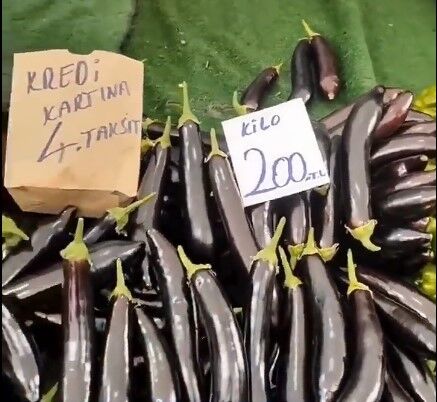 KREDİ
KARTINA
4.TAKSİT
KİLO
200.TL